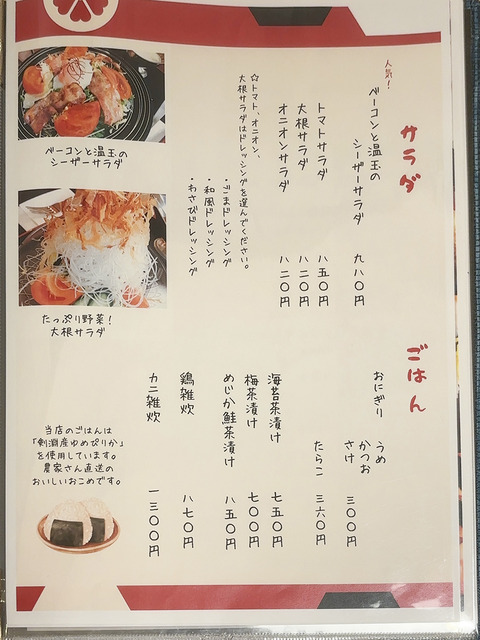 サラダ
人気!
ベーコンと温玉の
シーザーサラダ 九八〇円
トマトサラダ 八五〇円
大根サラダ 八二〇円
オニオンサラダ 八二〇円
☆トマト、オニオン、
大根サラダはドレッシングを選んでください。
・ごまドレッシング
・和風ドレッシング
・わさびドレッシング
ベーコンと温玉の
シーザーサラダ
たっぷり野菜!
大根サラダ
ごはん
おにぎり うめ
かつお
さけ 三〇〇円
たらこ 三六〇円
海苔茶漬け 七五〇円
梅茶漬け 七〇〇円
めじか鮭茶漬け 八五〇円
鶏雑炊 八七〇円
カニ雑炊 一三〇〇円
当店のごはんは
「剣淵産ゆめぴりか」
を使用しています。
農家さん直送の
おいしいおこめです。